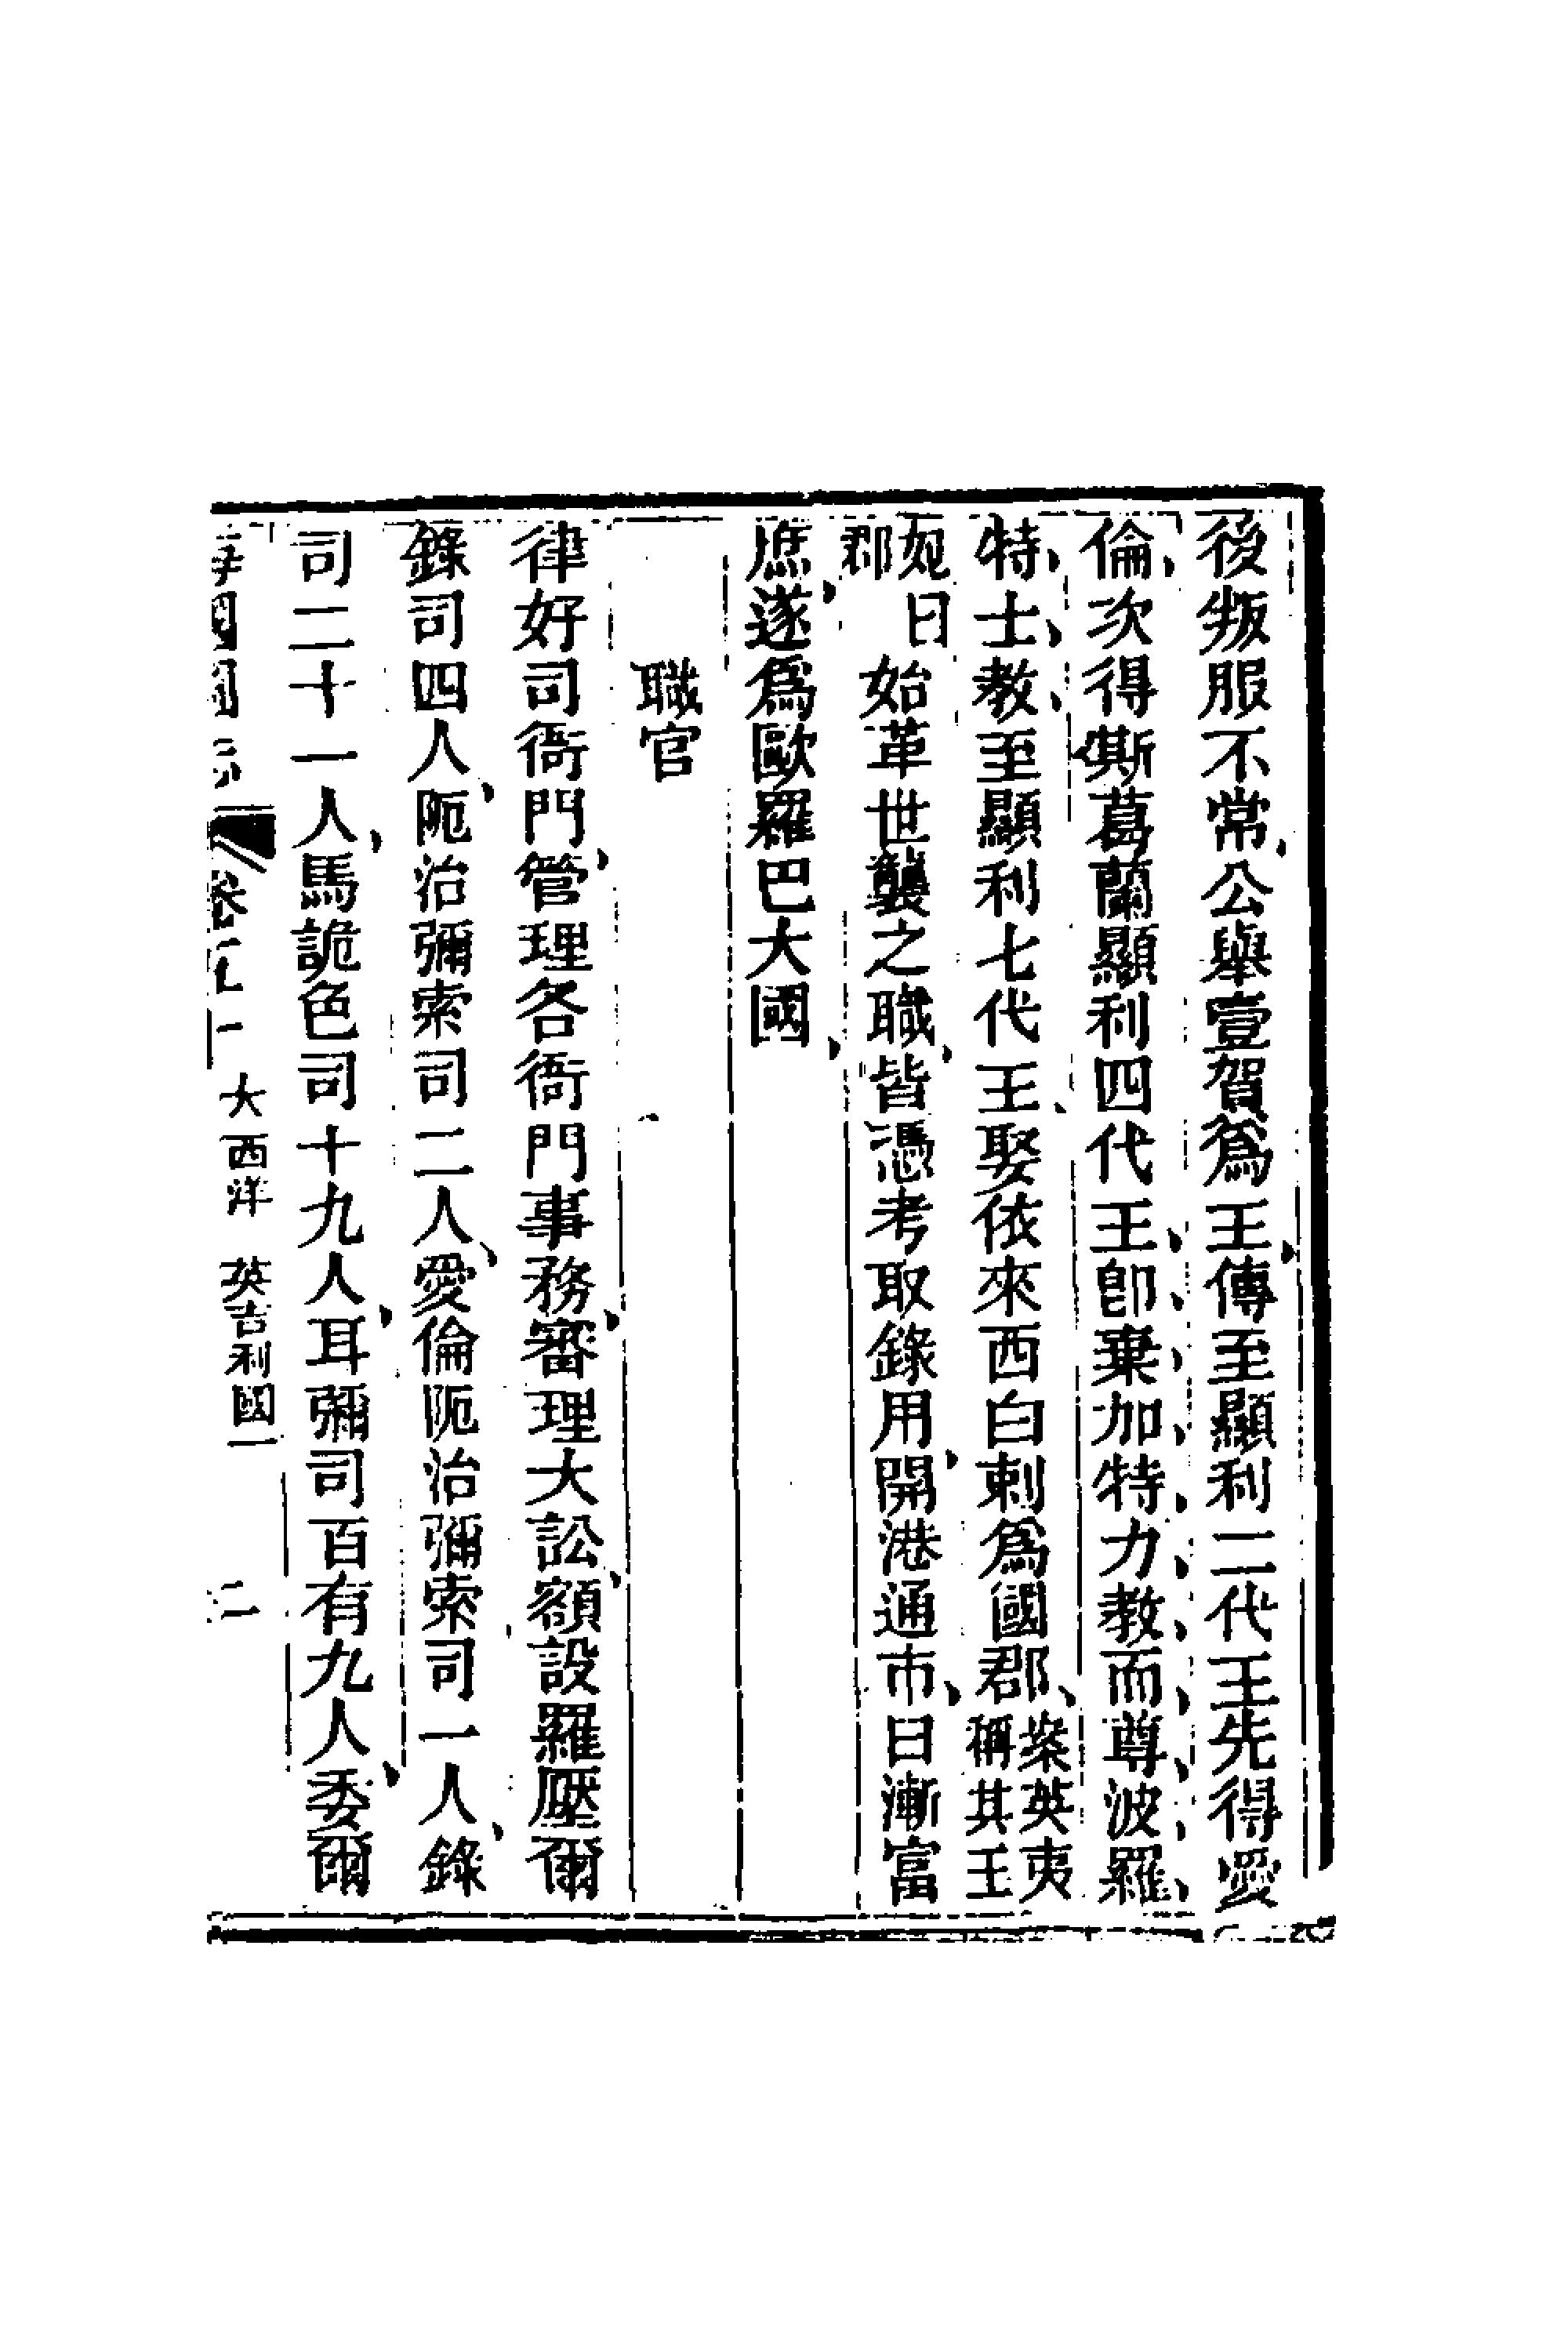 後叛服不常公舉壹賀爲王傳至顯利二代王先得愛
倫次得斯葛蘭顯利四代王卽棄加特力教而尊波羅
特士教至顯利七代王娶依來西白剌爲國郡案英夷
稱其王
妃曰
郡始革世襲之職皆憑考取錄用開港通市日漸富
庶遂爲歐羅巴大國
職官
律好司衙門管理各衙門事務審理大訟額設羅壓爾
錄司四人阨治彌索司二人愛倫阨治彌索司一人錄
司二十一人馬詭色司十九人耳彌司百有九人委爾
海國圖志 卷五十一 大西洋 英吉利國一 二